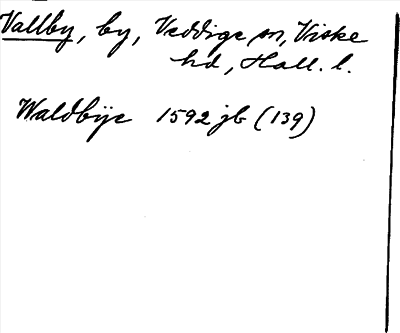 Vallby, by, Veddige sn, Viske
hd, Hall. l.
Waldbÿe 1592 jb (139)